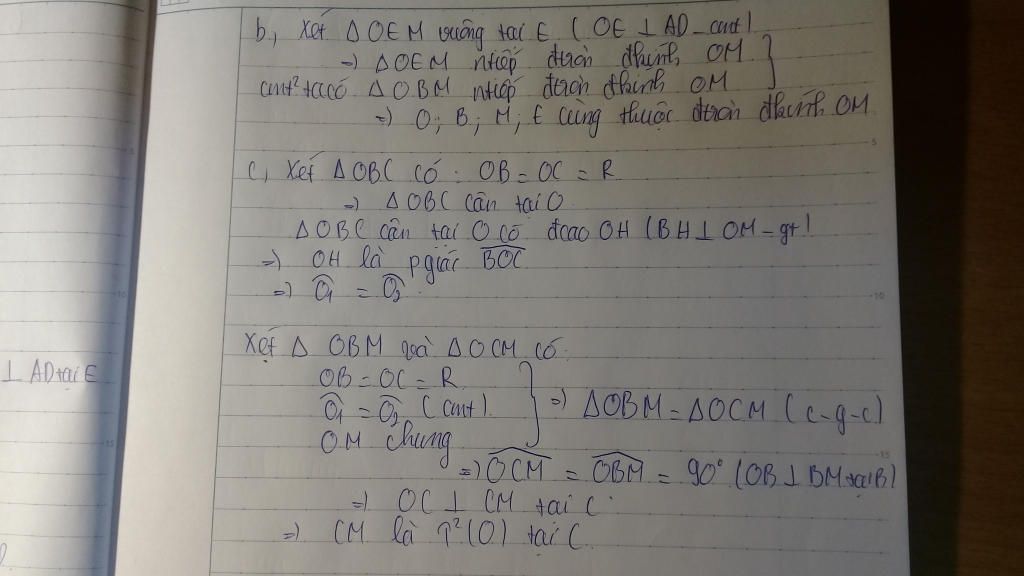 b, Xét Δ OEM vuông tại E ( OE ⊥ AD _ cmt )
=) Δ OEM ntiếp đtròn đkính OM
cmt² ta có Δ OBM ntiếp đtròn đkính OM
=) O ; B ; M ; E cùng thuộc đtròn đkính OM
c, Xét Δ OBC có : OB = OC = R
=) Δ OBC cân tại O
Δ OBC cân tại O có đcao OH ( BH ⊥ OM - gt )
=) OH là pgiác \widehat{BOC}
=) \widehat{O₁} = \widehat{O₂} .
Xét Δ OBM và Δ OCM có :
OB = OC = R
\widehat{O₁} = \widehat{O₂} ( cmt ) =) Δ OBM = Δ OCM ( c - g - c )
OM chung
=) \widehat{OCM} = \widehat{OBM} = 90° ( OB ⊥ BM tại B )
⊥ AD tại E
=) OC ⊥ CM tại C
=) CM là T² (O) tại C.